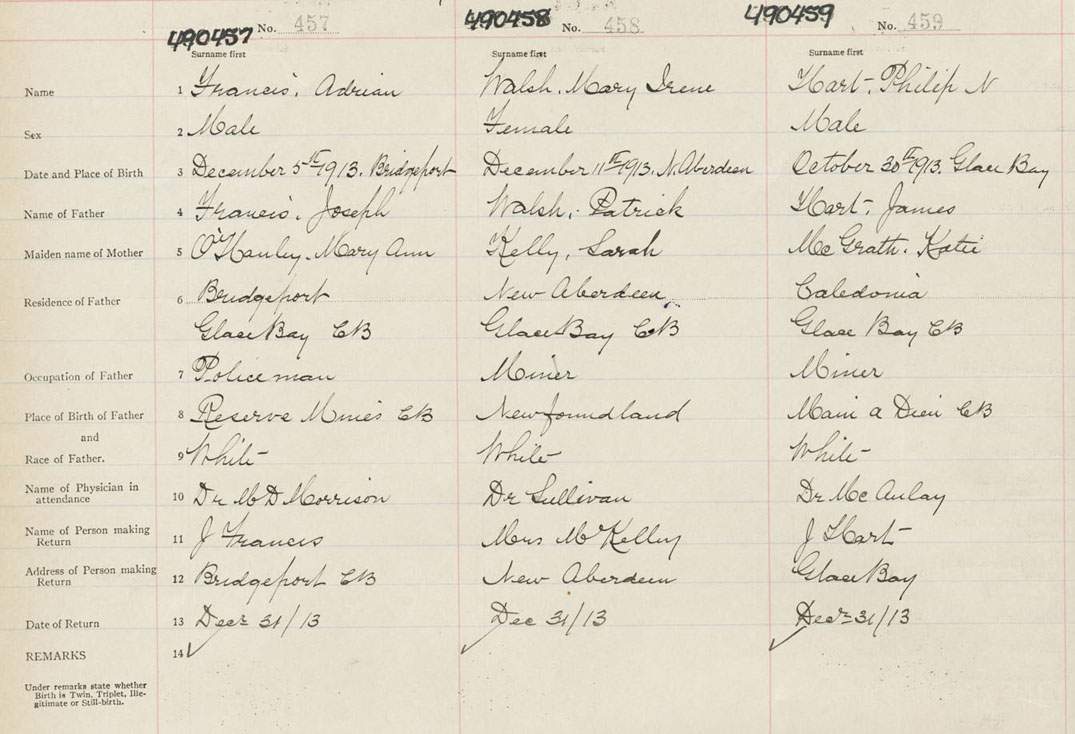 490457 No. 457 490458 No. 458 490459 No. 459
Surname first Surname first Surname first
Name 1 Francis, Adrian Walsh, Mary Irene Hart, Philip N
Sex 2 Male Female Male
Date and Place of Birth 3 December 5th 1913. Bridgeport December 11th 1913. N. Aberdeen October 30th 1913. Glace Bay
Name of Father 4 Francis, Joseph Walsh, Patrick Hart, James
Maiden name of Mother 5 O'Hanley, Mary Ann Kelly, Sarah McGrath, Katie
Residence of Father 6 Bridgeport New Aberdeen Caledonia
Glace Bay CB Glace Bay CB Glace Bay CB
Occupation of Father 7 Policeman Miner Miner
Place of Birth of Father 8 Reserve Mines CB Newfoundland Main a Dieu CB
and
Race of Father. 9 White White White
Name of Physician in
attendance 10 Dr M D Morrison Dr Sullivan Dr McAulay
Name of Person making
Return 11 J Francis Mrs McKelley J Hart
Address of Person making
Return 12 Bridgeport CB New Aberdeen Glace Bay
Date of Return 13 Decr 31/13 Dec 31/13 Decr 31/13
REMARKS 14
Under remarks state whether
Birth is Twin, Triplet, Ille-
gitimate or Still-birth.